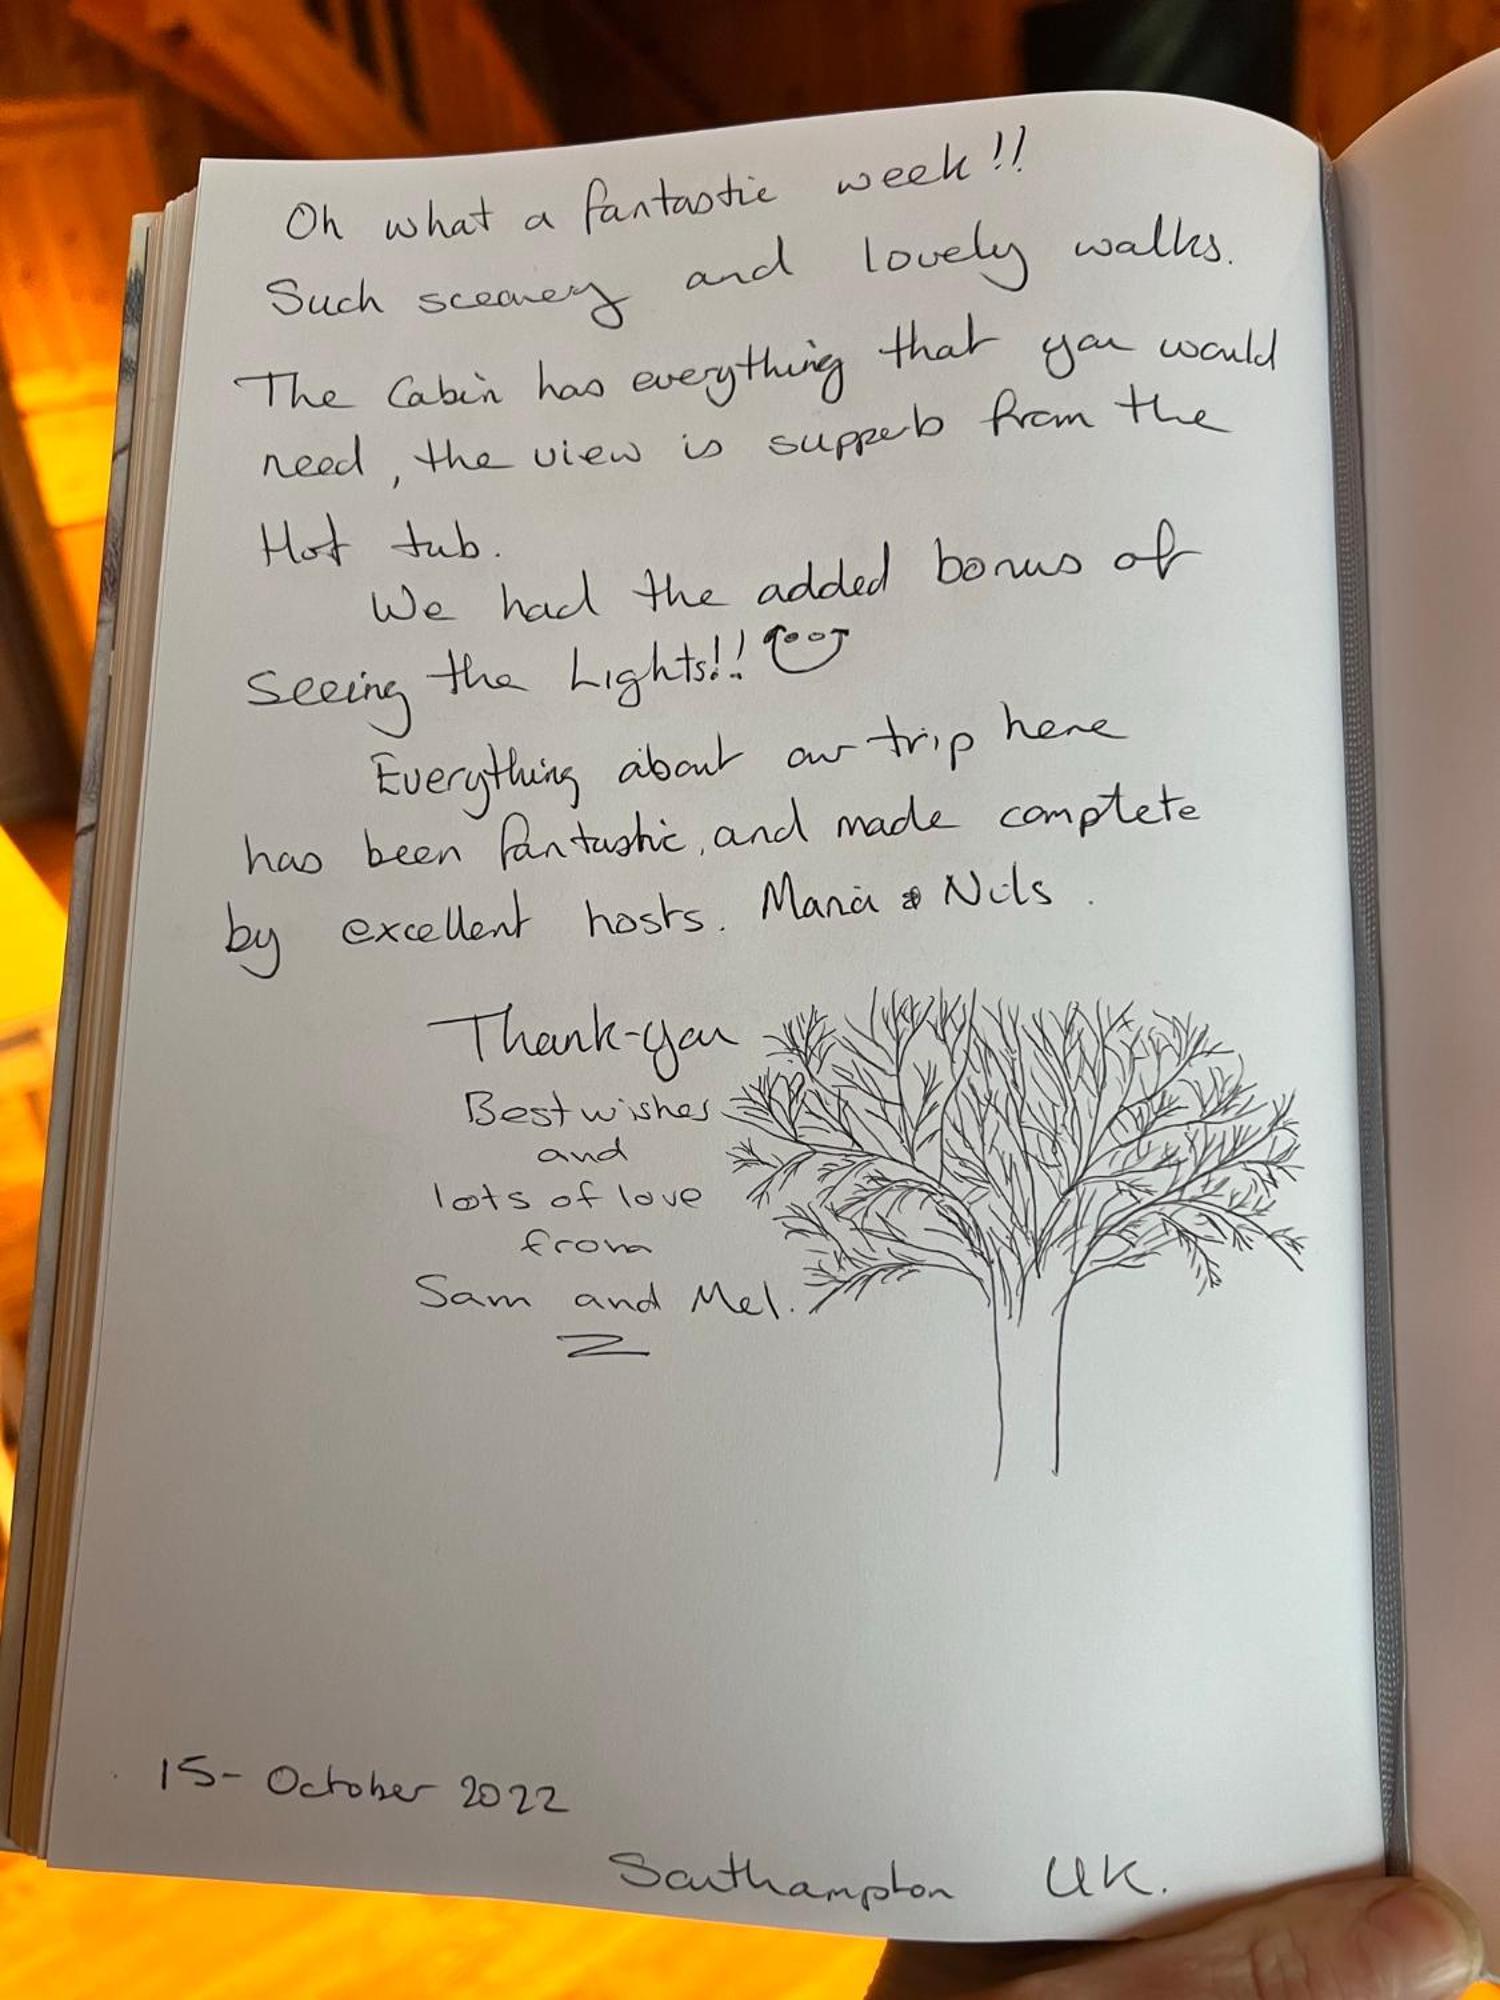 Oh what a fantastic week!!
Such sceanery and lovely walks.
The Cabin has everything that you would
need, the view is supperb from the
Hot tub.
We had the added bonus of
seeing the Lights!!
Everything about our trip here
has been fantastic, and made complete
by excellent hosts. Maria & Nils.
Thank-you
Best wishes
and
lots of love
from
Sam and Mel.
15- October 2022
Southampton UK.